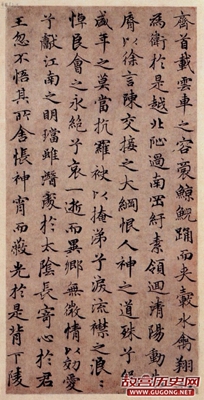 齊首載雲車之容裔鯨鯢踊而夾轂水禽翔
為衛於是越北沚過南岡紆素領迴清陽動朱
脣以徐言陳交接之大綱恨人神之道殊兮怨
盛年之莫當抗羅袂以掩涕兮淚流襟之浪〻
悼良會之永絕兮哀一逝而異鄉無微情以効愛
兮獻江南之明璫雖潛處於太陰長寄心於君
王忽不悟其所舍悵神宵而蔽光於是背下陵